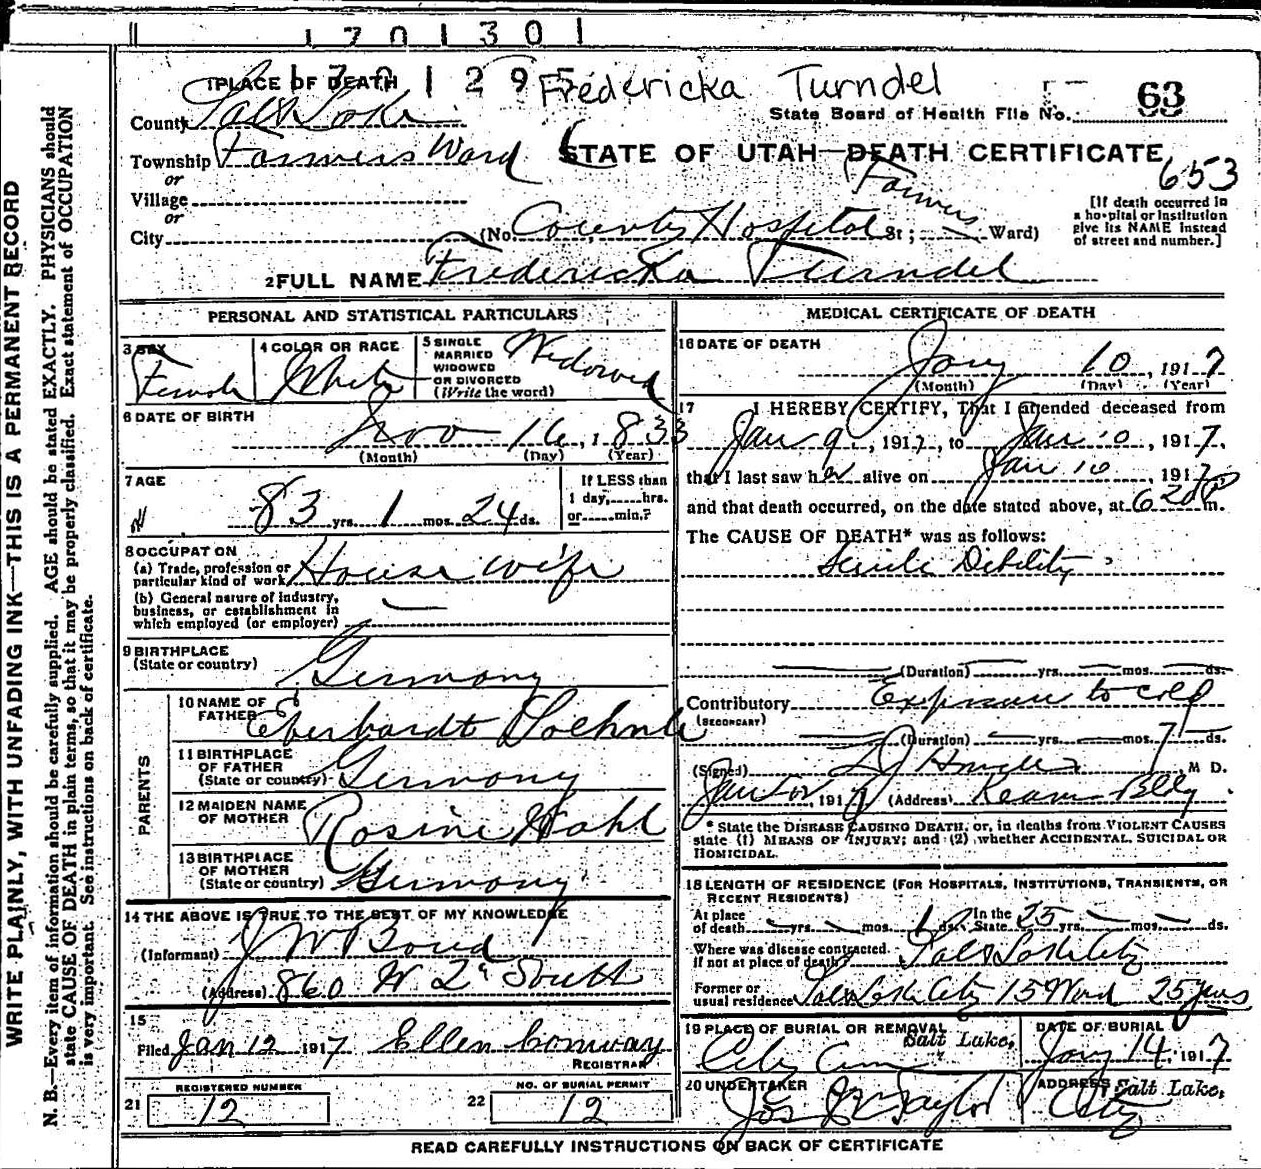 1701301
1701295
Fredericka Turndel
1 PLACE OF DEATH
63
State Board of Health File No.
County Salt Lake
Township Farmers Ward
STATE OF UTAH—DEATH CERTIFICATE
653
or
Village
or
City
(No. County Hospital St; Farmers Ward)
[If death occurred in a hospital or institution give its NAME instead of street and number.]
2 FULL NAME Fredericka Turndel
PERSONAL AND STATISTICAL PARTICULARS
3 SEX Female
4 COLOR OR RACE White
5 SINGLE MARRIED WIDOWED OR DIVORCED (Write the word) Widowed
6 DATE OF BIRTH Nov 16, 1833
(Month) (Day) (Year)
7 AGE 83 yrs. 1 mos. 24 ds.
If LESS than 1 day,......hrs. or......min.?
8 OCCUPATION
(a) Trade, profession or particular kind of work House wife
(b) General nature of industry, business, or establishment in which employed (or employer)
9 BIRTHPLACE (State or country) Germany
PARENTS
10 NAME OF FATHER Eberhardt
11 BIRTHPLACE OF FATHER (State or country) Germany
12 MAIDEN NAME OF MOTHER Rosine Wahl
13 BIRTHPLACE OF MOTHER (State or country) Germany
14 THE ABOVE IS TRUE TO THE BEST OF MY KNOWLEDGE
(Informant) J W Boud
(Address) 860 W. 2d South
15
Filed Jan 12 1917 Ellen Conway
REGISTRAR
REGISTERED NUMBER
21 12
NO. OF BURIAL PERMIT
22 12
MEDICAL CERTIFICATE OF DEATH
16 DATE OF DEATH
Jany 10, 1917
(Month) (Day) (Year)
17 I HEREBY CERTIFY, That I attended deceased from
Jan 9, 1917, to Jan 10, 1917.
that I last saw her alive on Jan 10, 1917
and that death occurred, on the date stated above, at 6 20 P m.
The CAUSE OF DEATH* was as follows:
Senile Debility
(Duration) yrs. mos. ds.
Contributory Exposure to cold
(SECONDARY)
(Duration) yrs. mos. 7 ds.
(Signed) M D.
1917 (Address) Kearns Bldg.
* State the DISEASE CAUSING DEATH, or, in deaths from VIOLENT CAUSES state (1) MEANS OF INJURY; and (2) whether ACCIDENTAL, SUICIDAL OR HOMICIDAL.
18 LENGTH OF RESIDENCE (FOR HOSPITALS, INSTITUTIONS, TRANSIENTS, OR RECENT RESIDENTS)
At place of death yrs. mos. 1 ds. In the State 25 yrs. mos. ds.
Where was disease contracted, if not at place of death? Salt Lake City
Former or usual residence Salt Lake City 15 Ward 25 years
19 PLACE OF BURIAL OR REMOVAL Salt Lake,
City Cem
DATE OF BURIAL
Jany 14, 1917
20 UNDERTAKER
Jos Wm Taylor
ADDRESS Salt Lake,
City
READ CAREFULLY INSTRUCTIONS ON BACK OF CERTIFICATE
WRITE PLAINLY, WITH UNFADING INK—THIS IS A PERMANENT RECORD
N. B.—Every item of information should be carefully supplied. AGE should be stated EXACTLY. PHYSICIANS should
state CAUSE OF DEATH in plain terms, so that it may be properly classified. Exact statement of OCCUPATION
is very important. See instructions on back of certificate.